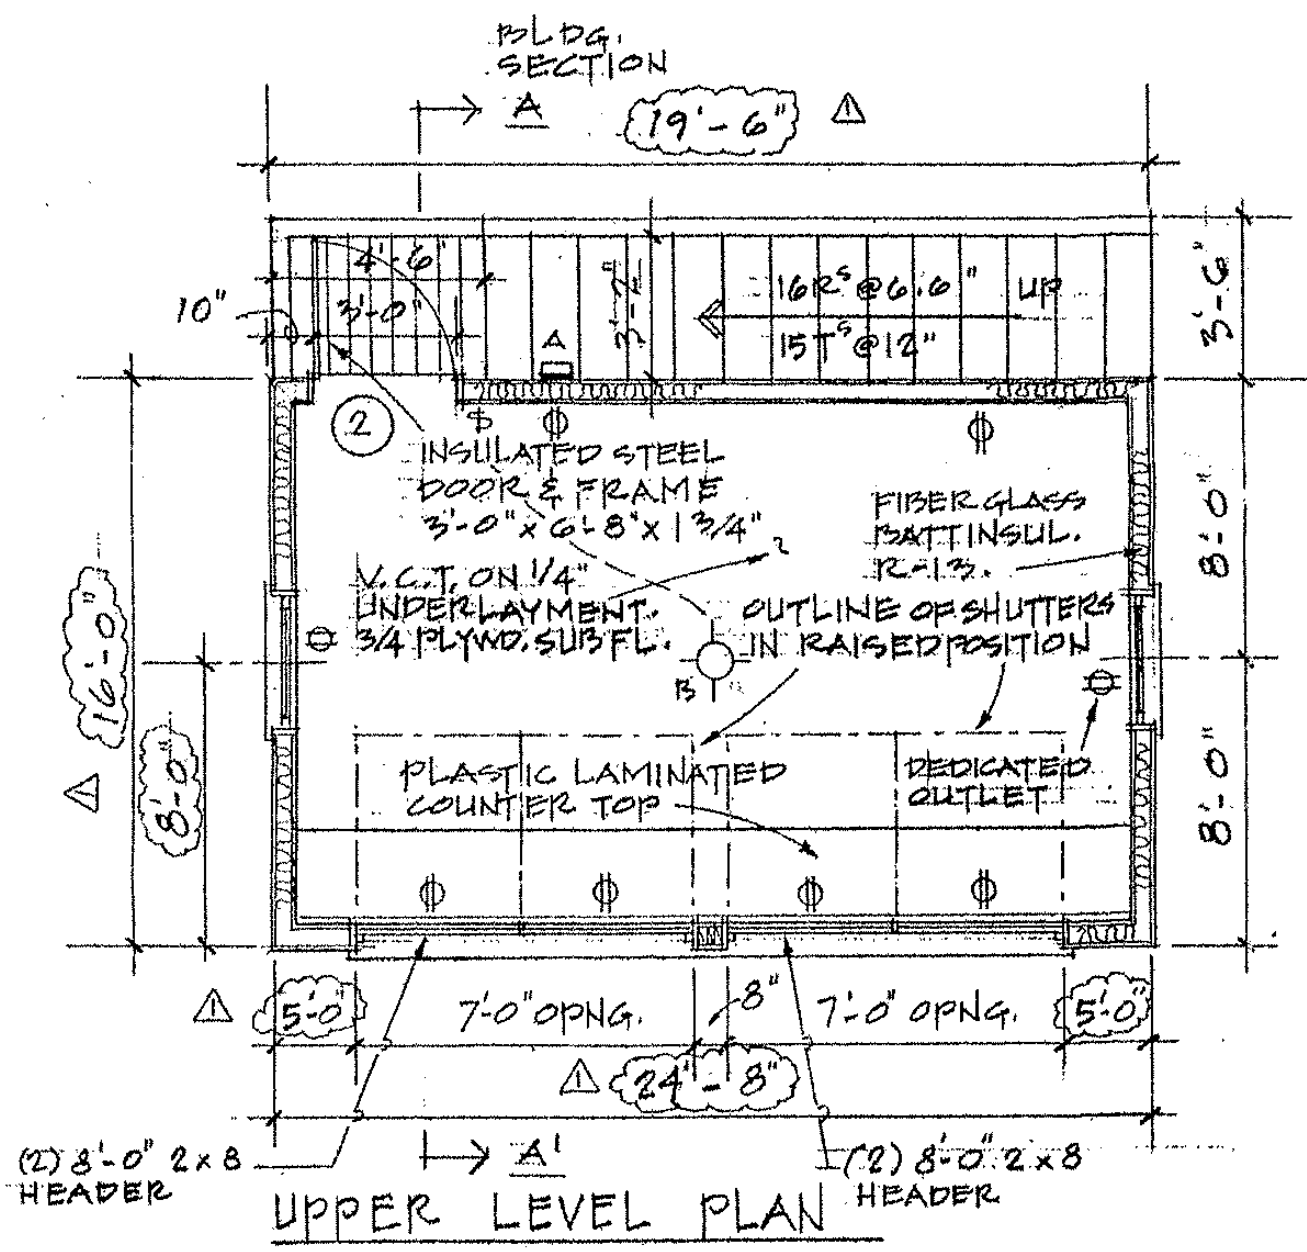 BLDG.
SECTION
A
19'-6"
1
4'-6"
10"
3'-0"
3'-2"
16RS @ 6.6" UP
15TS @ 12"
3'-6"
A
2
$
INSULATED STEEL
DOOR & FRAME
3'-0" x 6'-8" x 1 3/4"
FIBERGLASS
BATT INSUL.
R-13.
8'-0"
V.C.T. ON 1/4"
UNDERLAYMENT.
3/4 PLYWD. SUBFL.
OUTLINE OF SHUTTERS
IN RAISED POSITION
B
16'-0"
1
8'-0"
PLASTIC LAMINATED
COUNTER TOP
DEDICATED
OUTLET
8'-0"
1
5'-0"
7'-0" OPNG.
8"
7'-0" OPNG.
5'-0"
1
24'-8"
(2) 8'-0" 2x8
HEADER
A'
(2) 8'-0" 2x8
HEADER
UPPER LEVEL PLAN